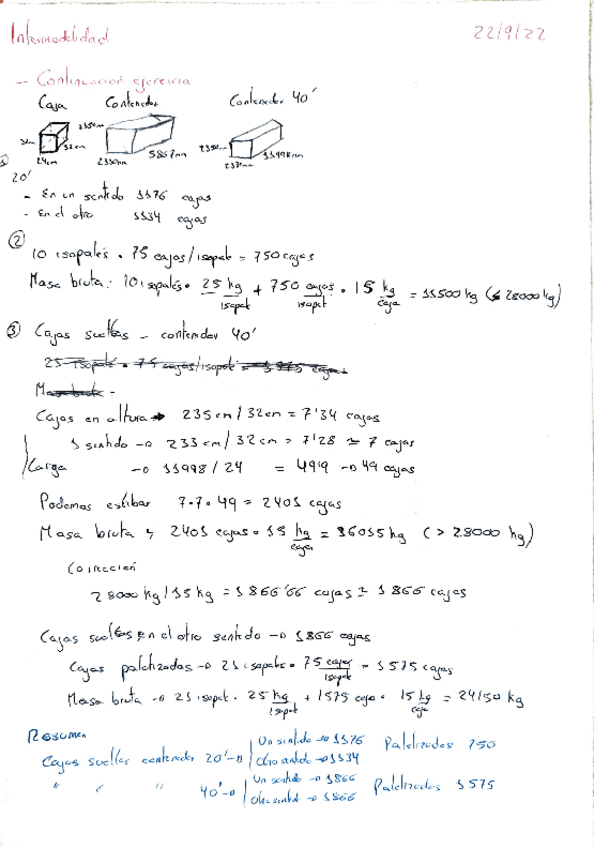 Intermodalidad 22/9/22
- Continuación ejercicio
Caja Contenedor Contenedor 40'
2350mm
32cm 32cm 24cm 2330mm 5867mm 2350mm 2330mm 11998mm
1
20'
- En un sentido 1176 cajas
- En el otro 1134 cajas
2
10 isopalés · 75 cajas/isopalé = 750 cajas
Masa bruta: 10 isopalés · 25 kg/isopal + 750 cajas/isopal · 15 kg/caja = 11500 kg (≤ 28000 kg)
3 Cajas sueltas - contenedor 40'
Cajas en altura → 235 cm/32cm = 7'34 cajas
1 sentido → 233 cm/32 cm = 7'28 ≃ 7 cajas
Carga → 11998/24 = 49'9 → 49 cajas
Podemos estibar 7·7·49 = 2401 cajas
Masa bruta 2401 cajas · 15 kg/caja = 36015 kg (> 28000 kg)
Corrección
28000 kg/15 kg = 1866'66 cajas ≃ 1866 cajas
Cajas sueltas en el otro sentido → 1866 cajas
Cajas paletizadas → 21 isopalés · 75 cajas/isopal = 1575 cajas
Masa bruta → 21 isopal · 25 kg/isopal + 1575 caja · 15 kg/caja = 24150 kg
Resumen
Cajas sueltas contenedor 20' → Un sentido → 1176 Paletizados 750
Otro sentido → 1134
" " " 40' → Un sentido → 1866 Paletizados 1575
Otro sentid → 1866